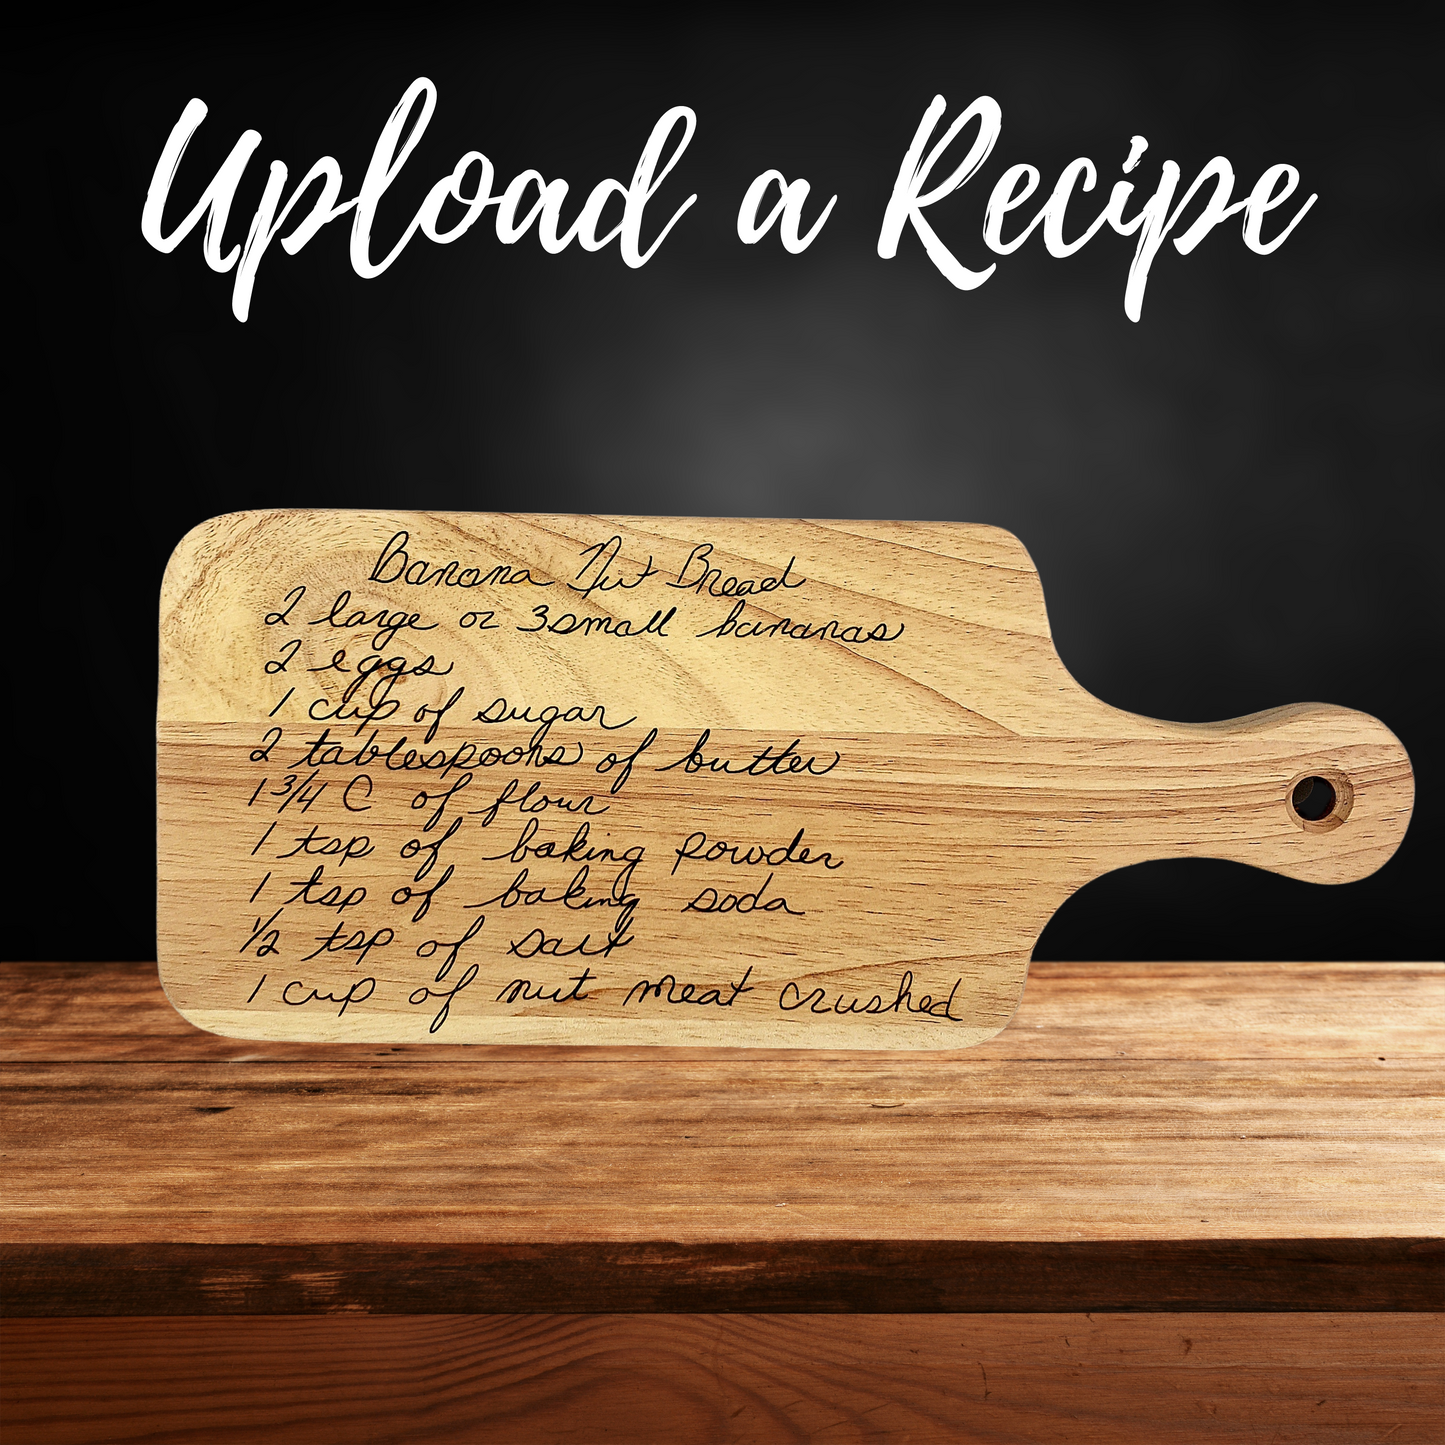 Upload a Recipe
Banana Nut Bread
2 large or 3 small bananas
2 eggs
1 cup of sugar
2 tablespoons of butter
1 3/4 C of flour
1 tsp of baking powder
1 tsp of baking soda
1/2 tsp of salt
1 cup of nut meat crushed